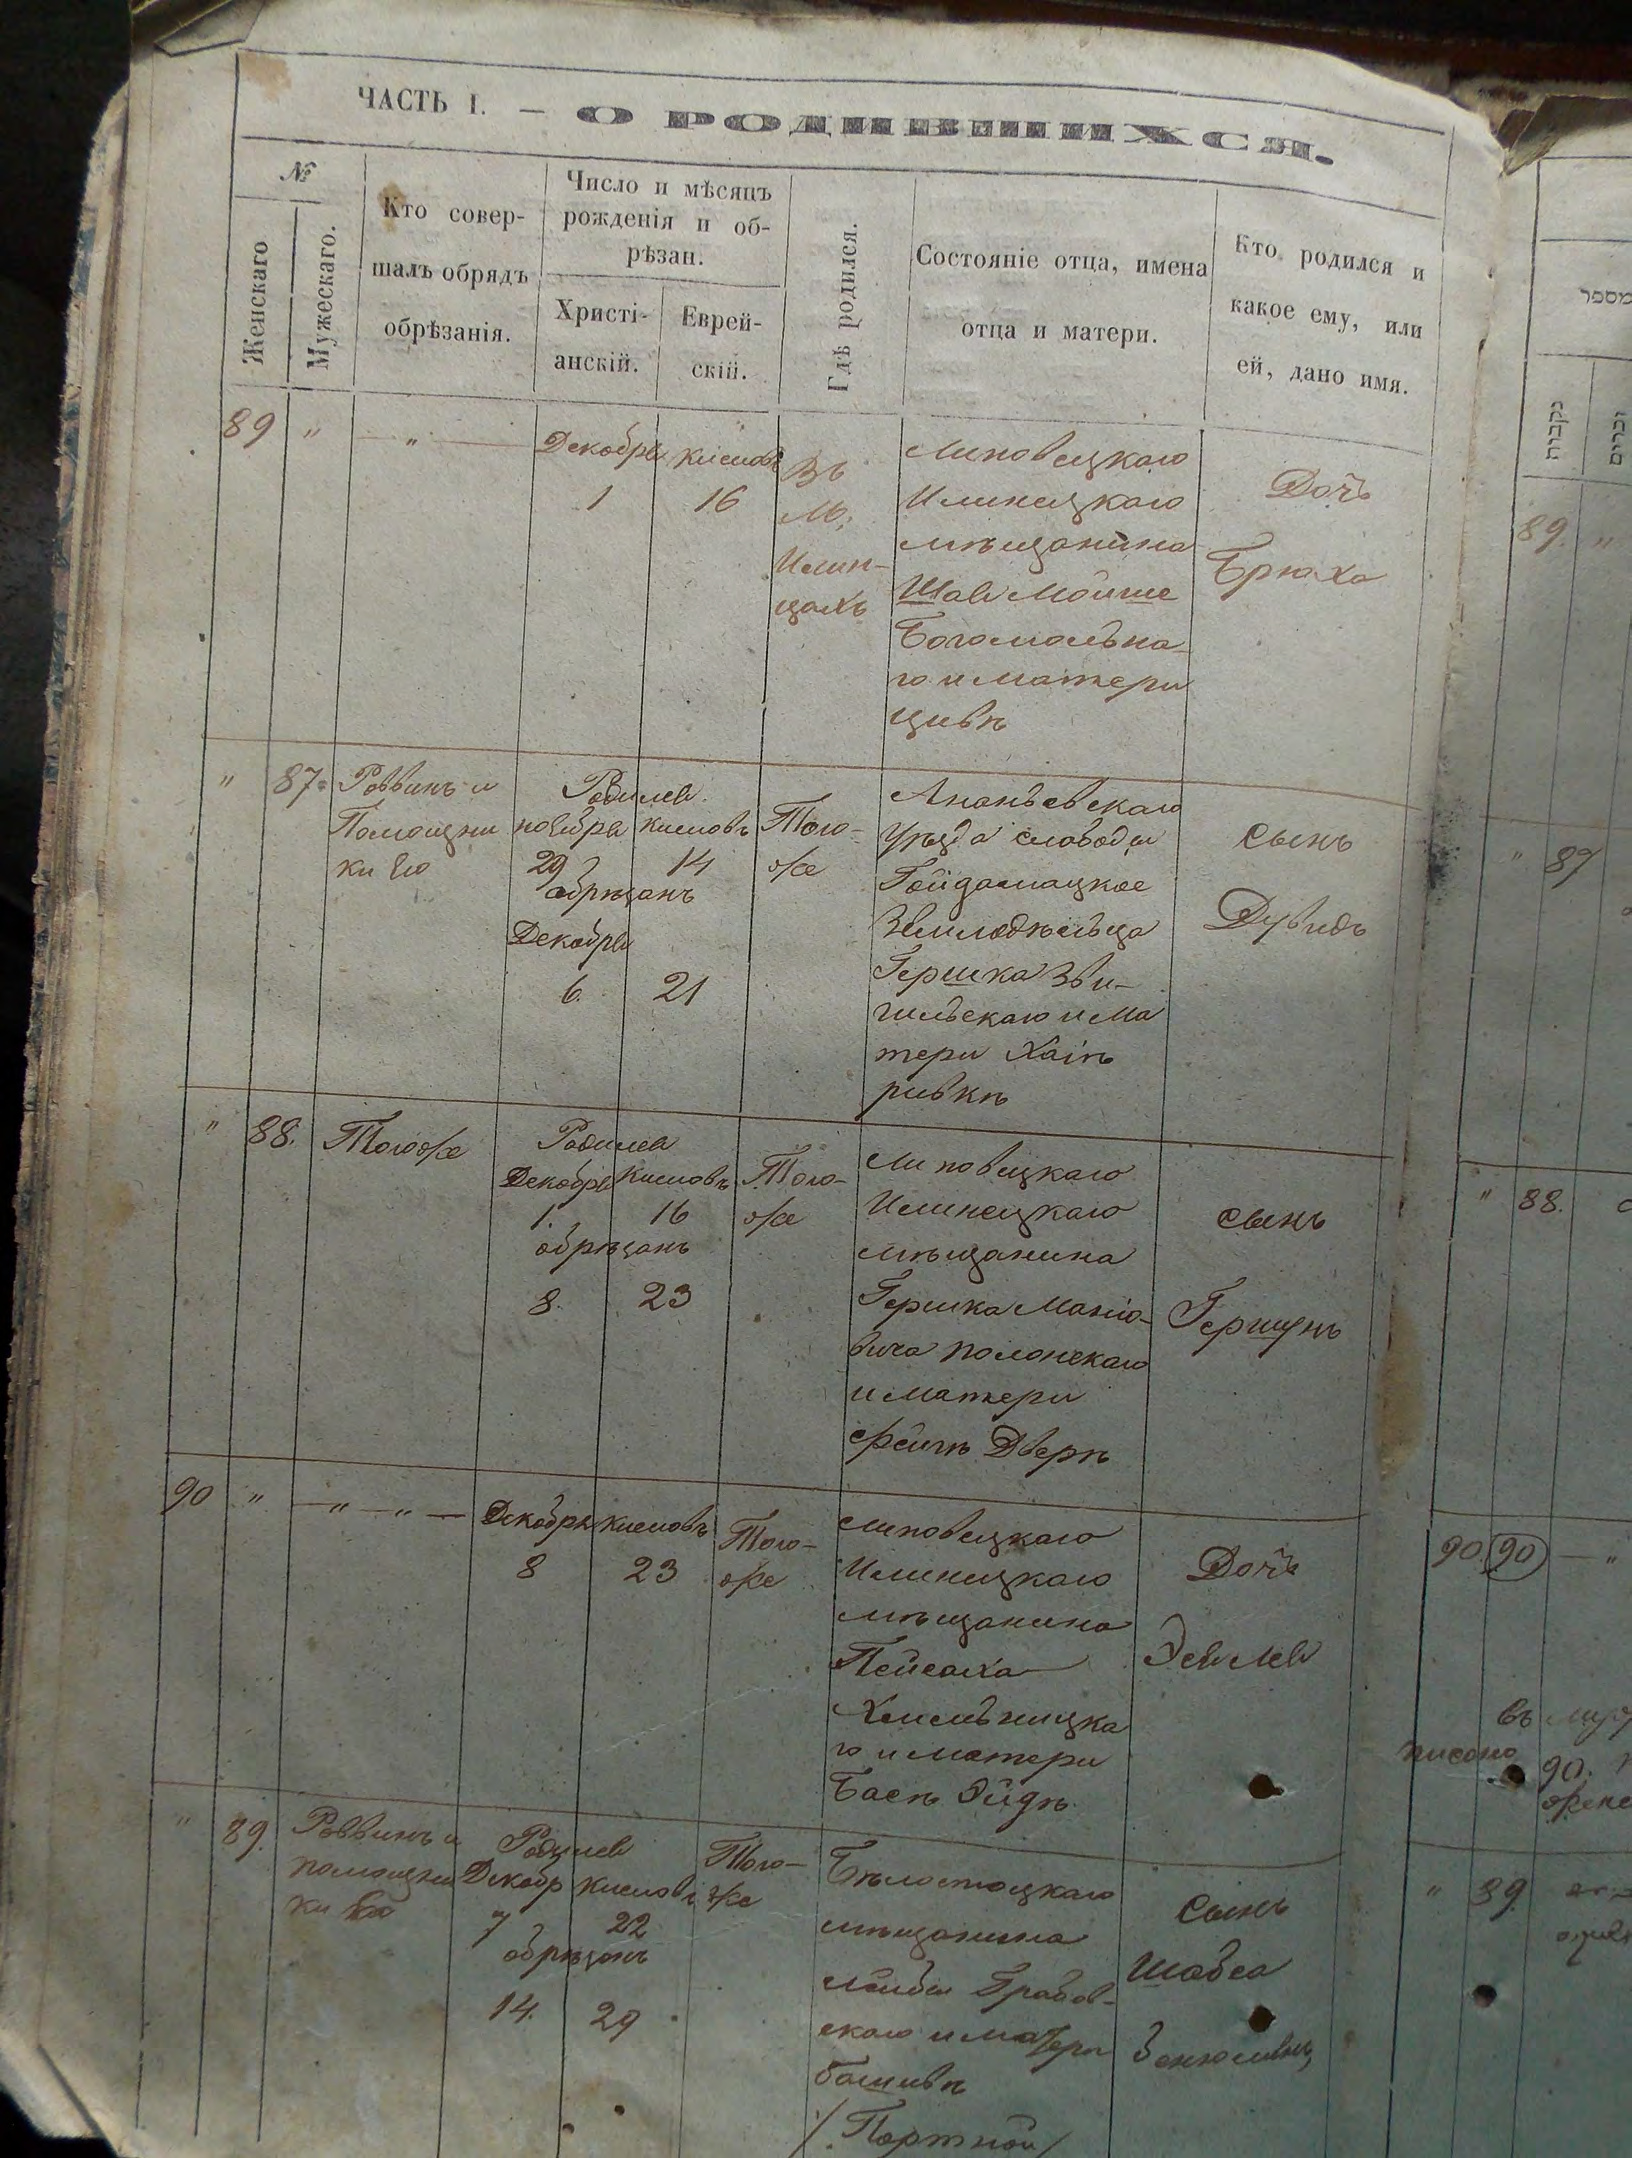 ЧАСТЬ I. — О РОДИВШИХСЯ.
№
Женскаго
Мужескаго.
Кто совер-
шалъ обрядъ
обрѣзанія.
Число и мѣсяцъ
рожденія и об-
рѣзан.
Христі-
анскій.
Еврей-
скій.
Гдѣ родился.
Состояніе отца, имена
отца и матери.
Кто родился и
какое ему, или
ей, дано имя.
89 " — " —
Декабря
1
Кислевъ
16
Въ
М.
Илин-
цахъ
Липовецкаго
Илинецкаго
мѣщанина
Мойше
Богомольна-
го и матери
Цивѣ
Дочь
Брюха
" 87. Раввинъ и
Помощни
ки Его
Родился
ноября Кислевъ
29 14
обрѣзанъ
Декабря
6. 21
Того-
же
Ананьевскаго
уѣзда слободы
Гайдамацкое
Земледѣльца
Гершка Зви-
гильскаго и ма
тери Хаіѣ
ривкѣ
сынъ
Дувидъ
" 88. Тогоже
Родился
Декабря Кислевъ
1. 16
обрѣзанъ
8. 23
Того-
же
Липовецкаго
Илинецкаго
мѣщанина
Гершка
вича Полонскаго
и матери
Дверѣ
сынъ
Гершунъ
90 " — " — " —
Декабря Кислевъ
8 23
Того-
же
Липовецкаго
Илинецкаго
мѣщанина
Пейсаха
Хмильницка
го и матери
Басѣ Эйдѣ
Дочь
" 89. Раввинъ и
помощни
ки Его
Родился
Декабр Кислевъ
7 22
обрѣзанъ
14. 29
Того-
же
Бѣлостоцкаго
мѣщанина
Лейбы Грабов-
скаго и матери
Башивѣ
/. Портной /
сынъ
Шабса
מספר
נקבות
זכרים
89. "
" 87
" 88.
90. 90 — "
въ
писано
90.
" 89